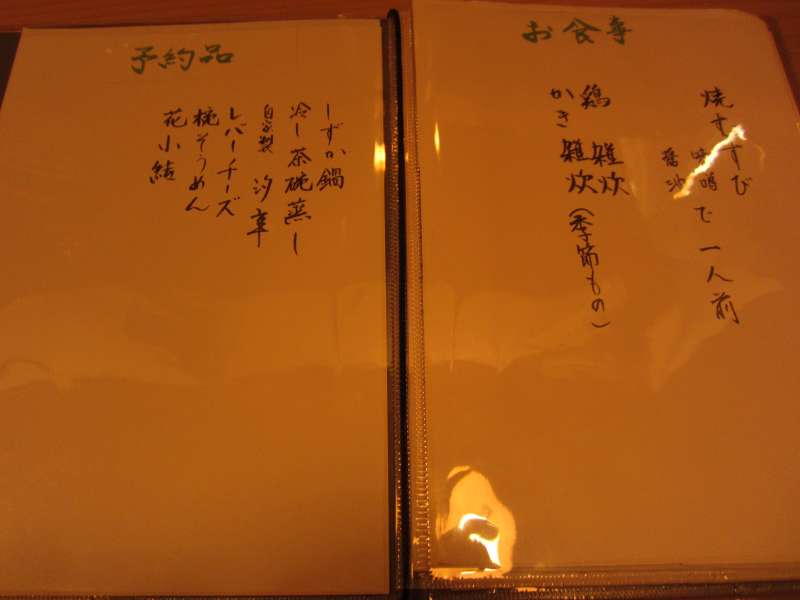 お食事
焼すすび
味噌
醤油
で一人前
鶏 雑炊
かき 雑炊(季節もの)
予約品
しずか鍋
冷し茶碗蒸し
自家製 汐辛
レバーチーズ
椀そうめん
花小